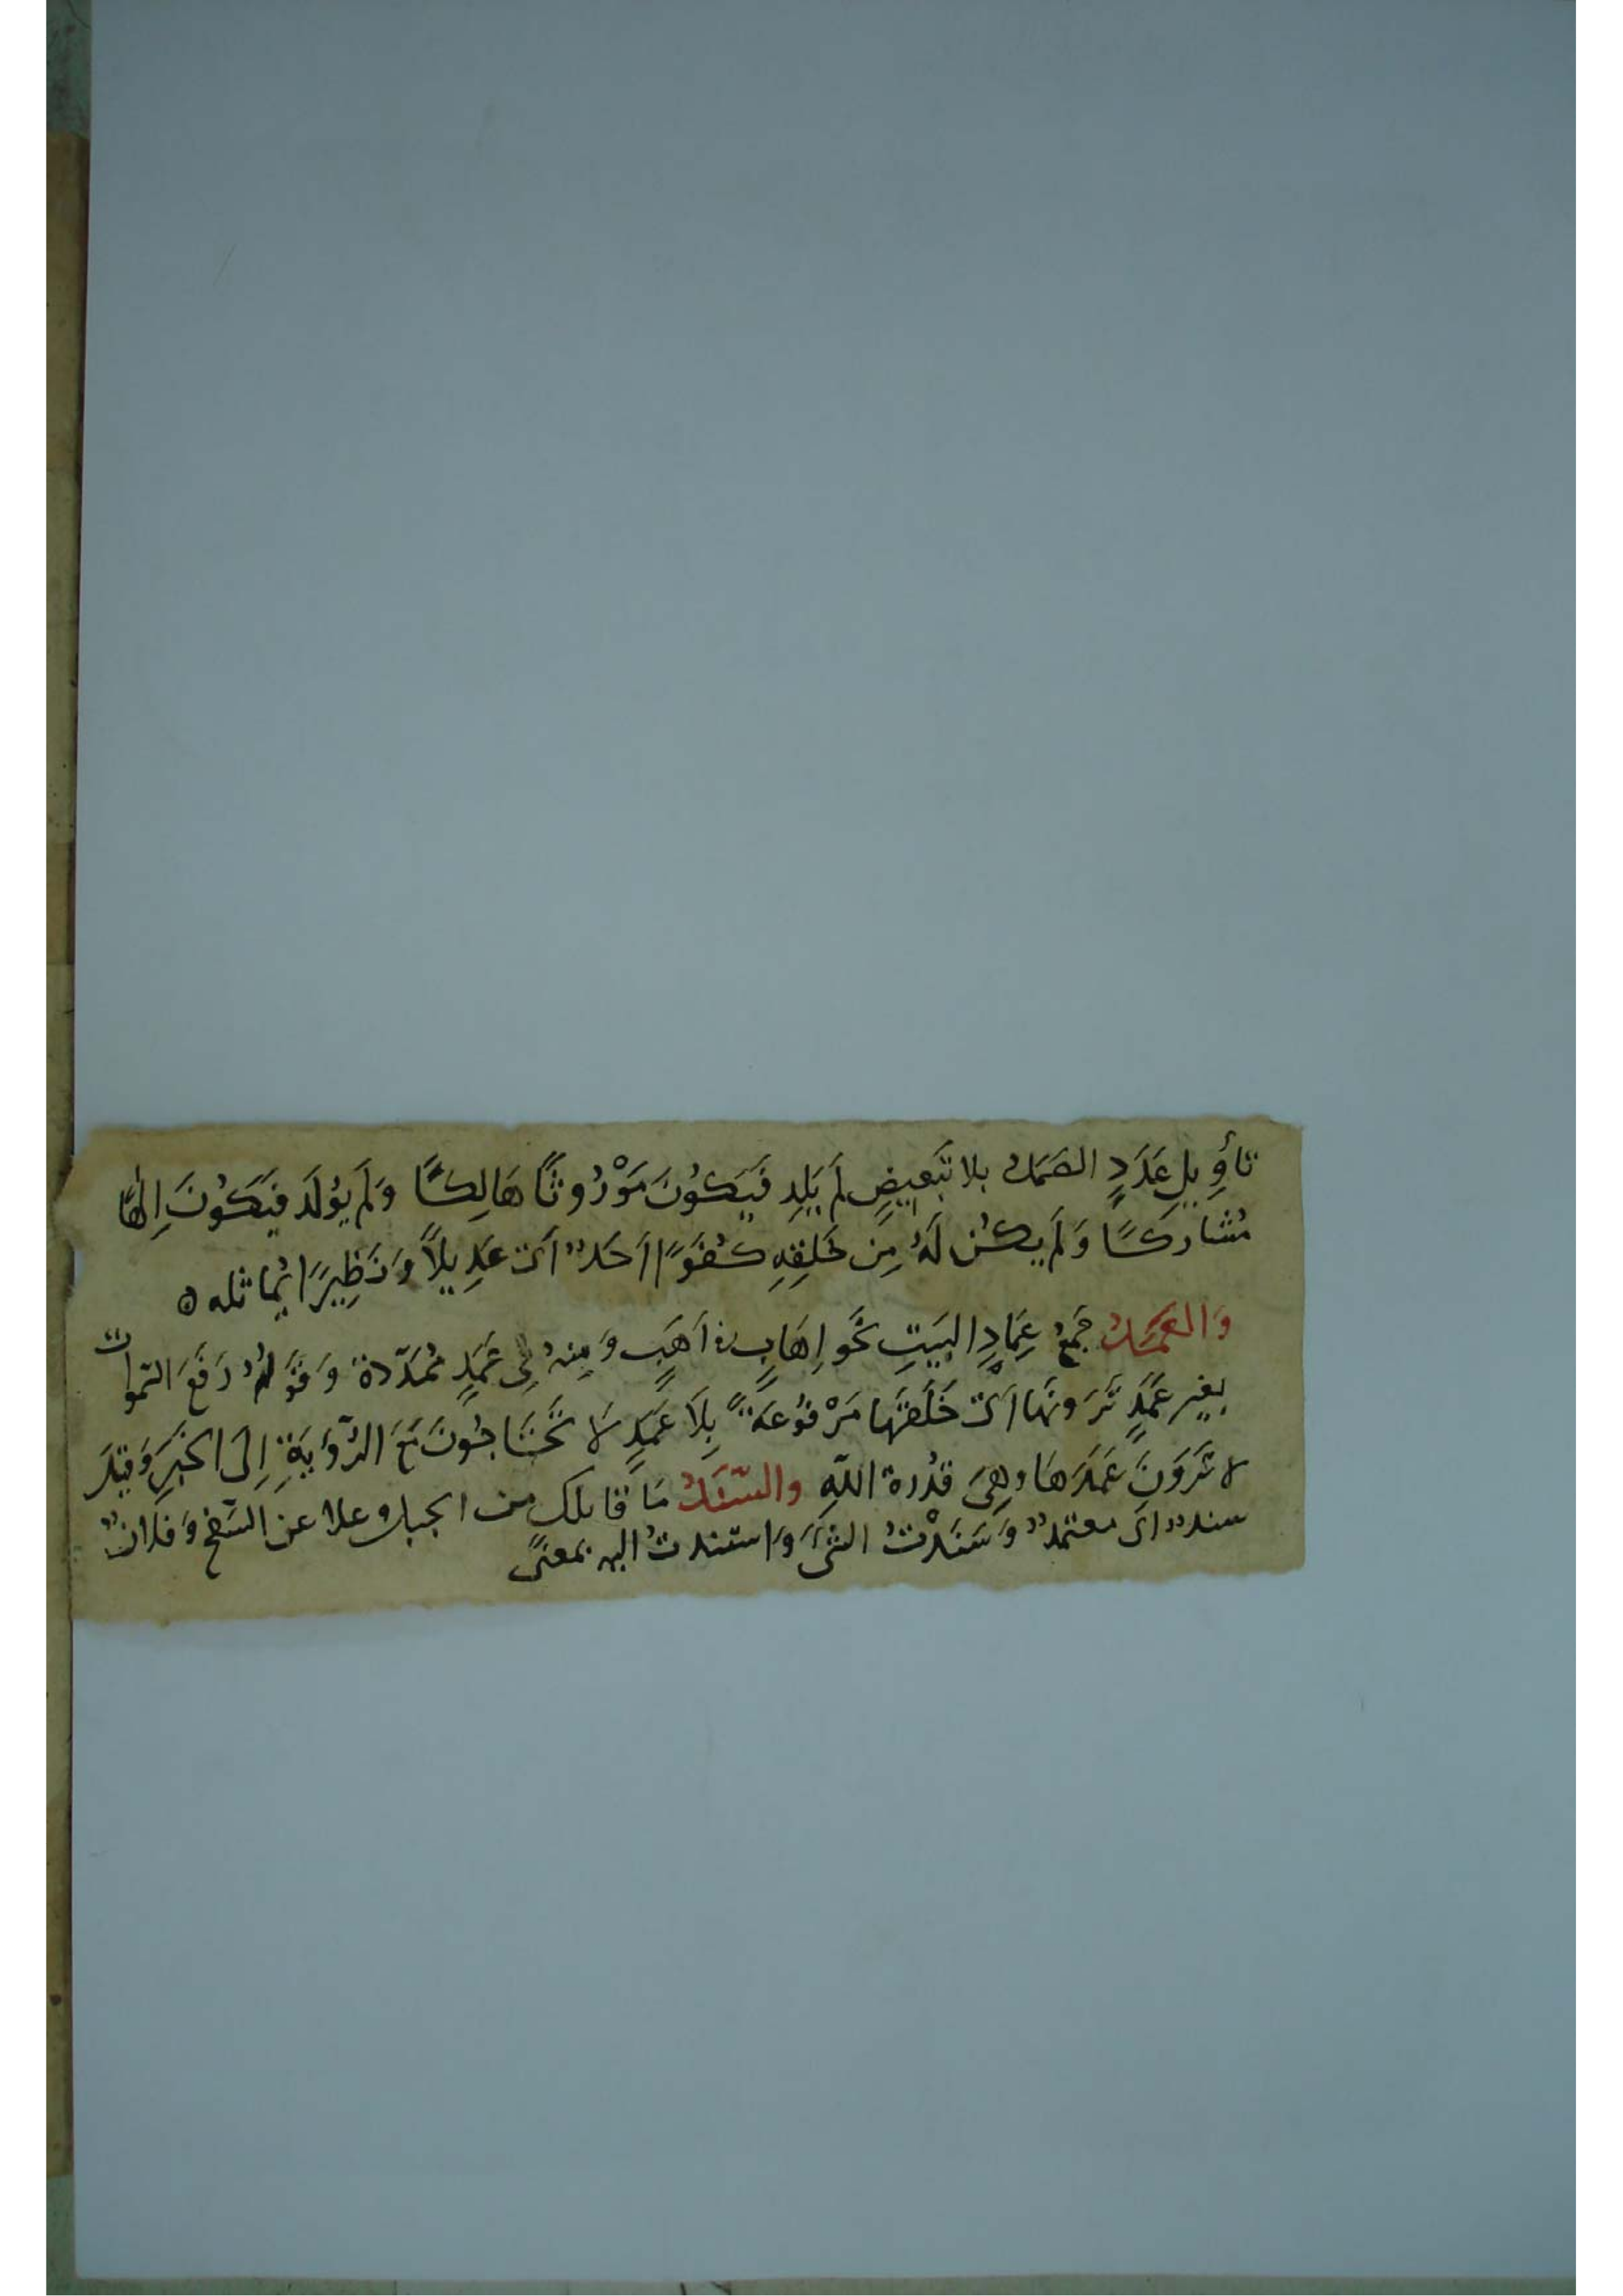 تأوِيلِ عَدَدٍ الصَّمَدُ بلا تَبَعيضٍ لَم يَلِد فَيَكُونَ مَوْرُوثًا هَالِكًا وَلَم يُولَد فَيَكُونَ اِلهًا
مُشاركًا وَلَم يكُن لَهُ مِن خَلقِهِ كُفوًا اَحَدٌ اَى عَدِيلاً وَنَظِيرًا يُماثله ٥
وَالعَمَدُ جَمعُ عِمَادِ البَيتِ نَحو اِهَابٍ و اَهَبٍ وَمِنهُ فِى عَمَدٍ مُمَدَّدة وَقَولُهُ رَفَعَ السَّموات
بغير عَمَدٍ تَرَونَهَا اَى خَلَقَهَا مَرْفُوعَةً بِلَا عَمَدٍ لَا تَحتَاجُونَ مَعَ الرُّؤيَةِ اِلَى الخَبَرِ وَقِيلَ
لا تَرَوَنَ عَمَدَهَا وهِىَ قدُرة اللّهِ والسَّنَدُ مَا قابلك من الجبال وعلا عن السَّفح وَفلانٌ
سندٌ اى معتمدٌ وَسَنَدْتُ الشىَ وَاستندتُ اليه بمعنًى